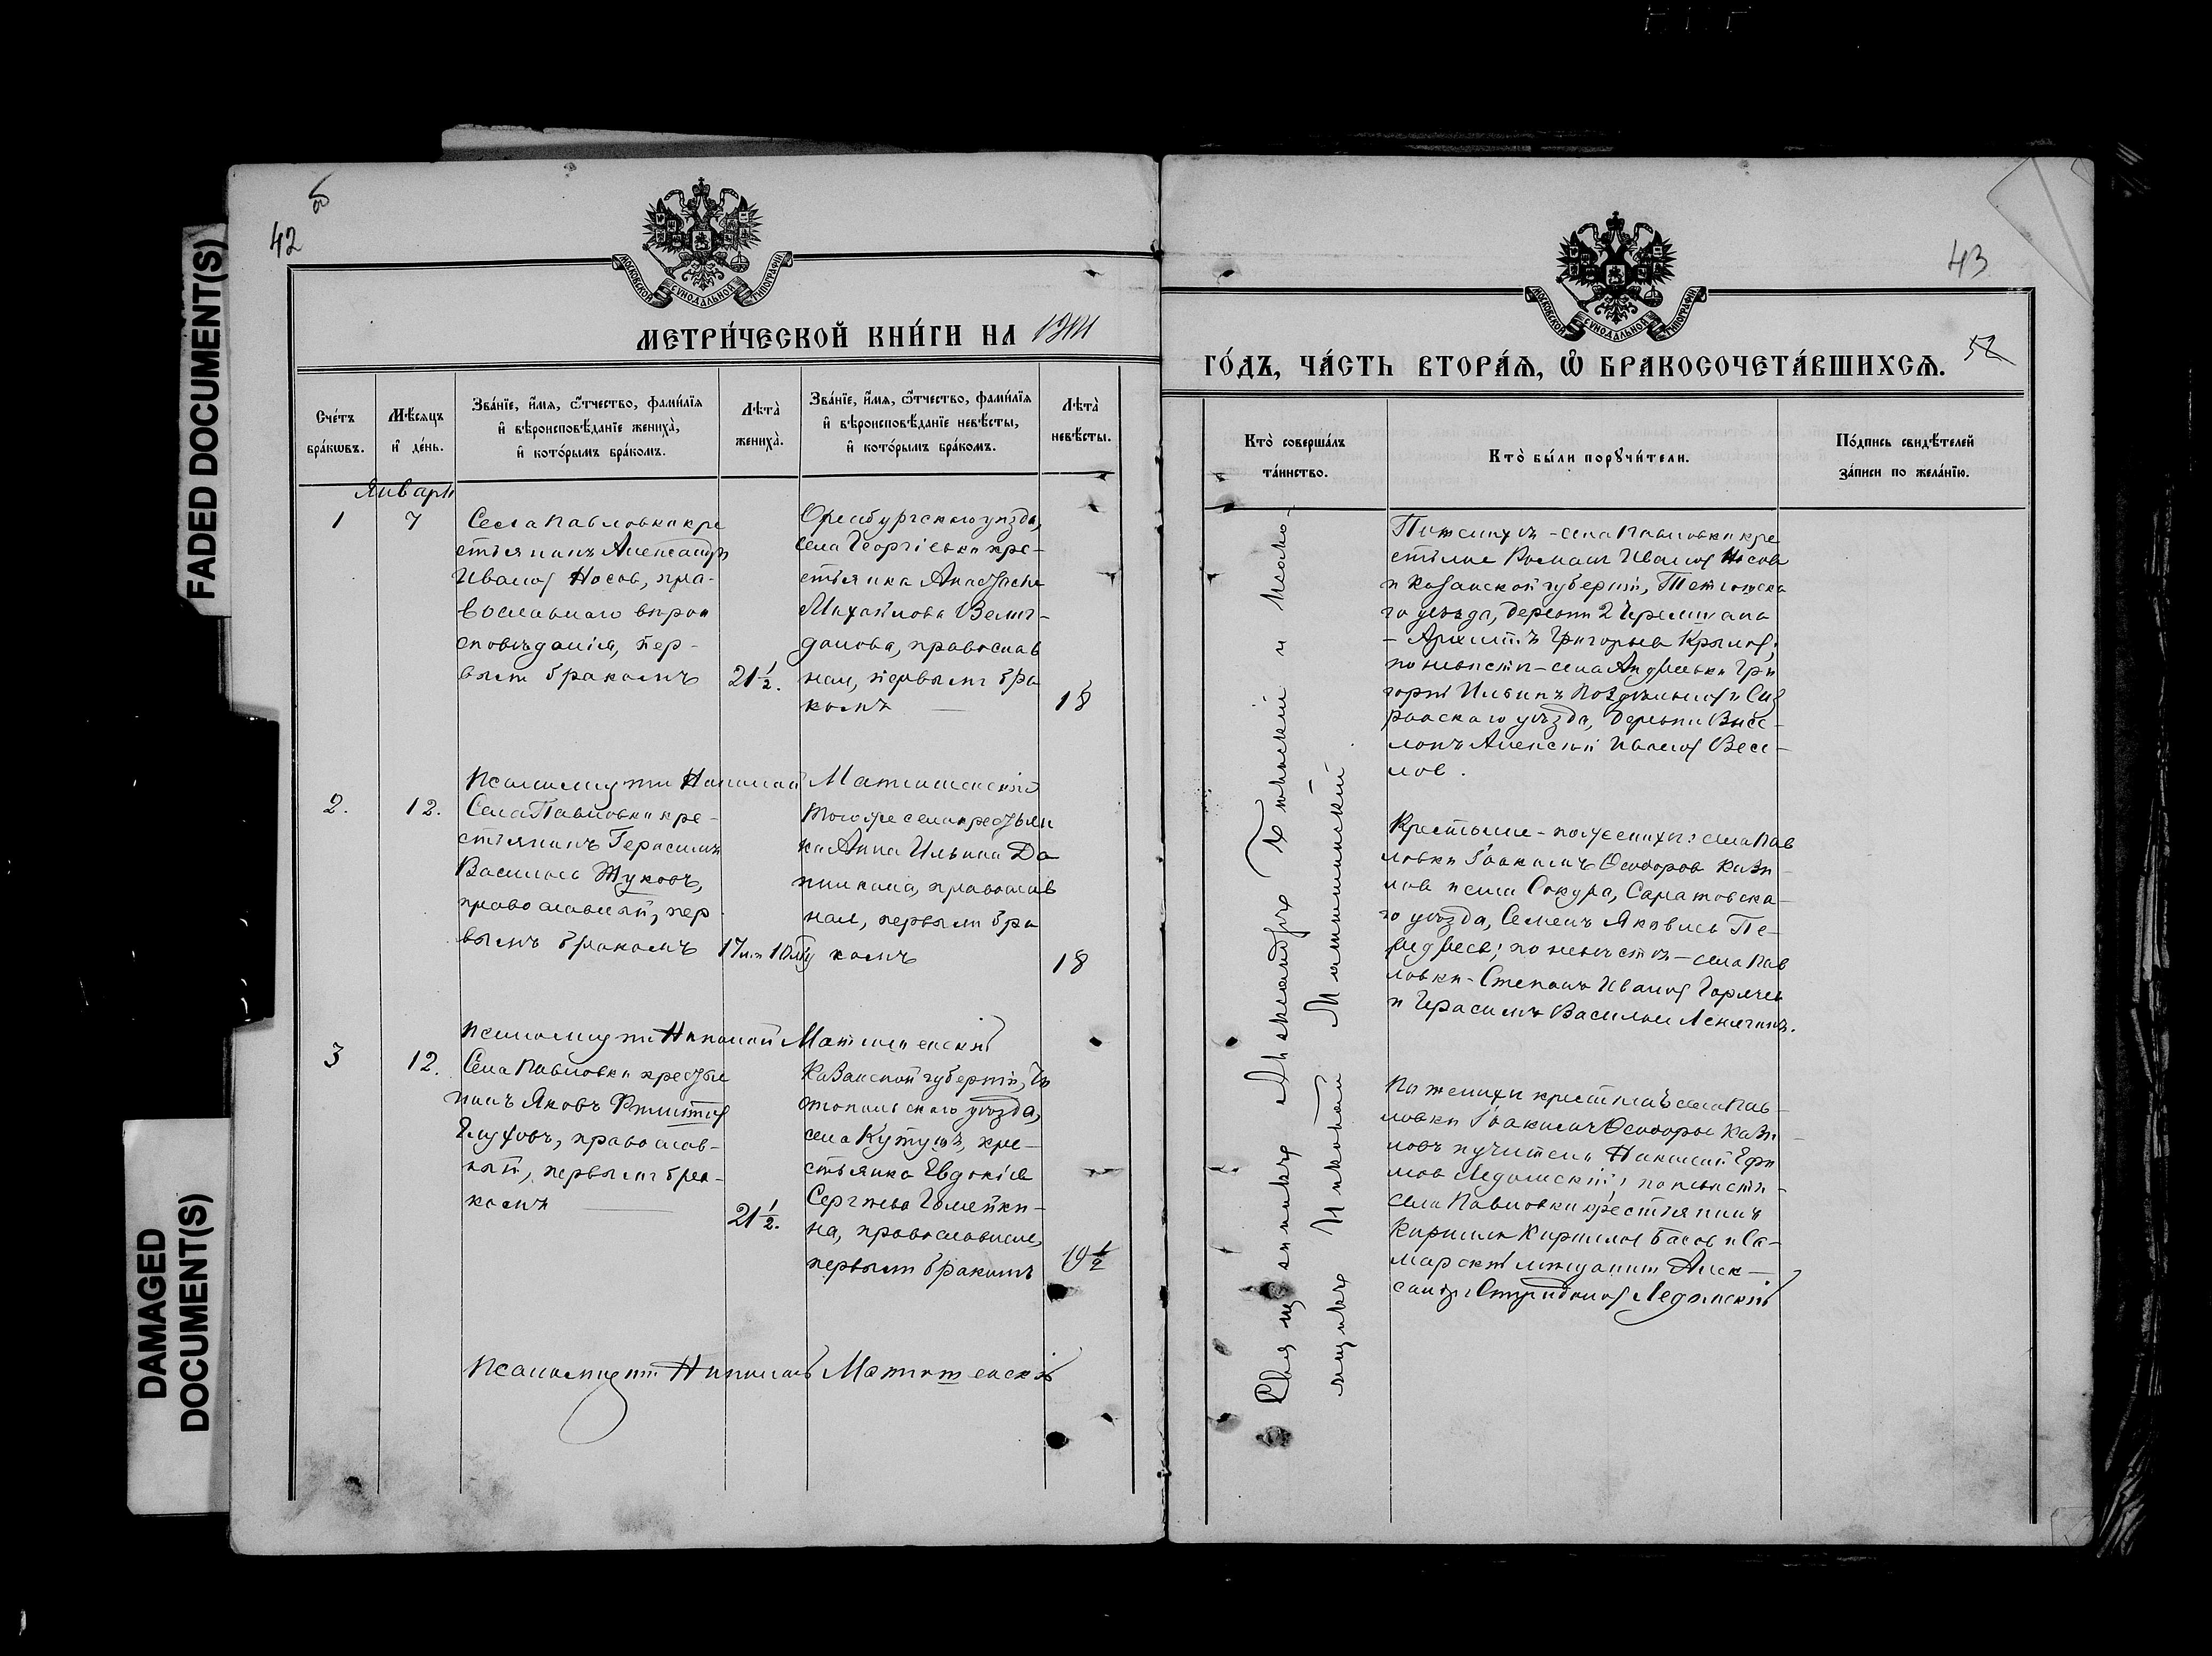 FADED DOCUMENT(S)
DAMAGED
DOCUMENT(S)
42
МОСКОВСКОЙ СѴНОДАЛЬНОЙ ТИПОГРАФІИ
МЕТРИ́ЧЕСКОЙ КНИ́ГИ НА
Сче́тъ бра́кωвъ.
Мѣ́сяцъ и҆ де́нь.
Зва́нїе, и҆́мя, ѻ҆́тчество, фами́лїя
и҆ вѣроисповѣ́данїе жениха̀,
и҆ кото́рымъ бра́комъ.
Лѣта̀
жениха̀.
Зва́нїе, и҆́мя, ѻ҆́тчество, фами́лїя
и҆ вѣроисповѣ́данїе невѣ́сты,
и҆ кото́рымъ бра́комъ.
Лѣта̀
невѣ́сты.
Январь
1
7
Села Павловки кре
стьянинъ Александръ
Ивановъ Носов, пра-
вославнаго вѣрои
сповѣданія, пер-
вымъ бракомъ
21 1/2.
Оренбургскаго уѣзда,
села Георгіевки кре-
стьянка Анастасія
Михайлова Велич-
данова, православ
ная, первымъ бра
комъ
18
Псаломщикъ Николай Матюшенскій
2.
12.
Села Павловки кре-
стьянинъ Герасимъ
Васильевъ Жуковъ,
православный, пер
вымъ бракомъ
17 л. и 10 м.
Того же села крестьян
ка Анна Ильина Да
нилкина, православ
ная, первымъ бра
комъ
18
Псаломщикъ Николай Матюшенскій
3
12.
Села Павловки крестья
нинъ Яковъ Филиппов
Глуховъ, православ-
ный, первымъ бра-
комъ
21 1/2.
Казанской губерніи, Чи
стопольскаго уѣзда,
села Кутушъ, кре-
стьянка Евдокія
Сергѣева Гомейки-
на, православная,
первымъ бракомъ
19 1/2
Псаломщикъ Николай Матюшенскій
43
52
МОСКОВСКОЙ СѴНОДАЛЬНОЙ ТИПОГРАФІИ
ГО́ДЪ, ЧА́СТЬ ВТОРА́Я, Ѡ҆ БРАКОСОЧЕТА́ВШИХСЯ.
Кто̀ соверша́лъ
та́инство.
Кто̀ бы́ли порꙋчи́тели.
По́дпись свидѣ́телей
за́писи по жела́нїю.
Священникъ Александръ и псало-
мщикъ Николай Матюшенскій
По женихѣ - села Павловки кре
стьяне Романъ Ивановъ Носов
и Казанской губерніи, Тетюшска
го уѣзда, деревни
Григорьев Крылов;
по невѣстѣ - села Андреевки Гри
горій Ильинъ и Сыз
ранскаго уѣзда, деревни
Алексѣй Иванов Весе-
лов.
Крестьяне - по женихѣ: села Пав
ловки Іоакимъ Ѳеодоров
и села Сокура, Саратовска-
го уѣзда, Семенъ Яковлевъ
по невѣстѣ - села Пав
ловки - Степанъ Иванов Горячев
и Герасимъ Васильев
По женихѣ крестьянъ села Пав-
ловки Іоакимъ Ѳеодоров
и учитель Николай Ефи
мов Ледомскій; по невѣстѣ -
села Павловки крестьянинъ
Кириллъ Кириллов Басов и Са-
марскій мѣщанинъ Алек-
сандръ Спиридонов Ледомскій